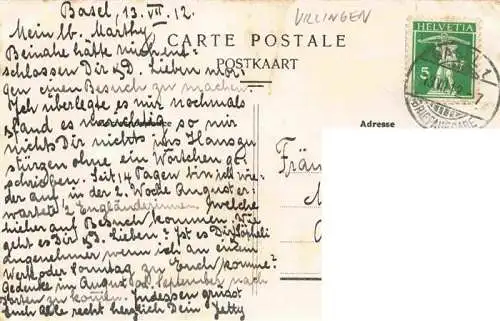 Basel, 13. VII. 12.
VILLINGEN
Mein lb. Marthy!
HELVETIA
5
CARTE POSTALE
POSTKAART
Beinahe hätte mich ent-
schlossen Dir &D. Lieben mor-
gen einen Besuch zu machen.
Ich überlegte es mir nochmals
& fand es so mir
nichts Dir nichts ins Haus zu
stürzen ohne ein Wörtchen ge-
schrieben. Seit 14 Tagen bin ich wie-
der auf, in der 2. Woche August er-
warte 2 Engländerinnen welche
hieher auf Besuch kommen. Wie
geht es Dir &D. Lieben? Ist es Dir
angenehmer wenn ich an einem
Werk oder Sonntag zu Euch komme?
Gedenke im August od. September nach
zu kommen. Indessen grüsst
Euch Alle recht herzlich Dein Jetty
Adresse
Fräu